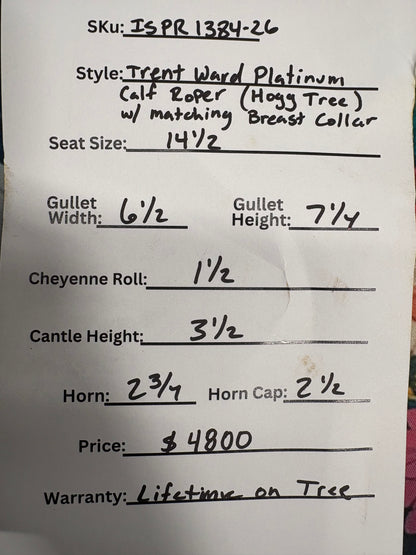 SKu: ISPR 1384-26
Style: Trent Ward Platinum
Calf Roper (Hogg Tree)
w/ matching Breast Collar
Seat Size: 14 1/2
Gullet Width: 6 1/2 Gullet Height: 7 1/4
Cheyenne Roll: 1 1/2
Cantle Height: 3 1/2
Horn: 2 3/4 Horn Cap: 2 1/2
Price: $4800
Warranty: Lifetime on Tree